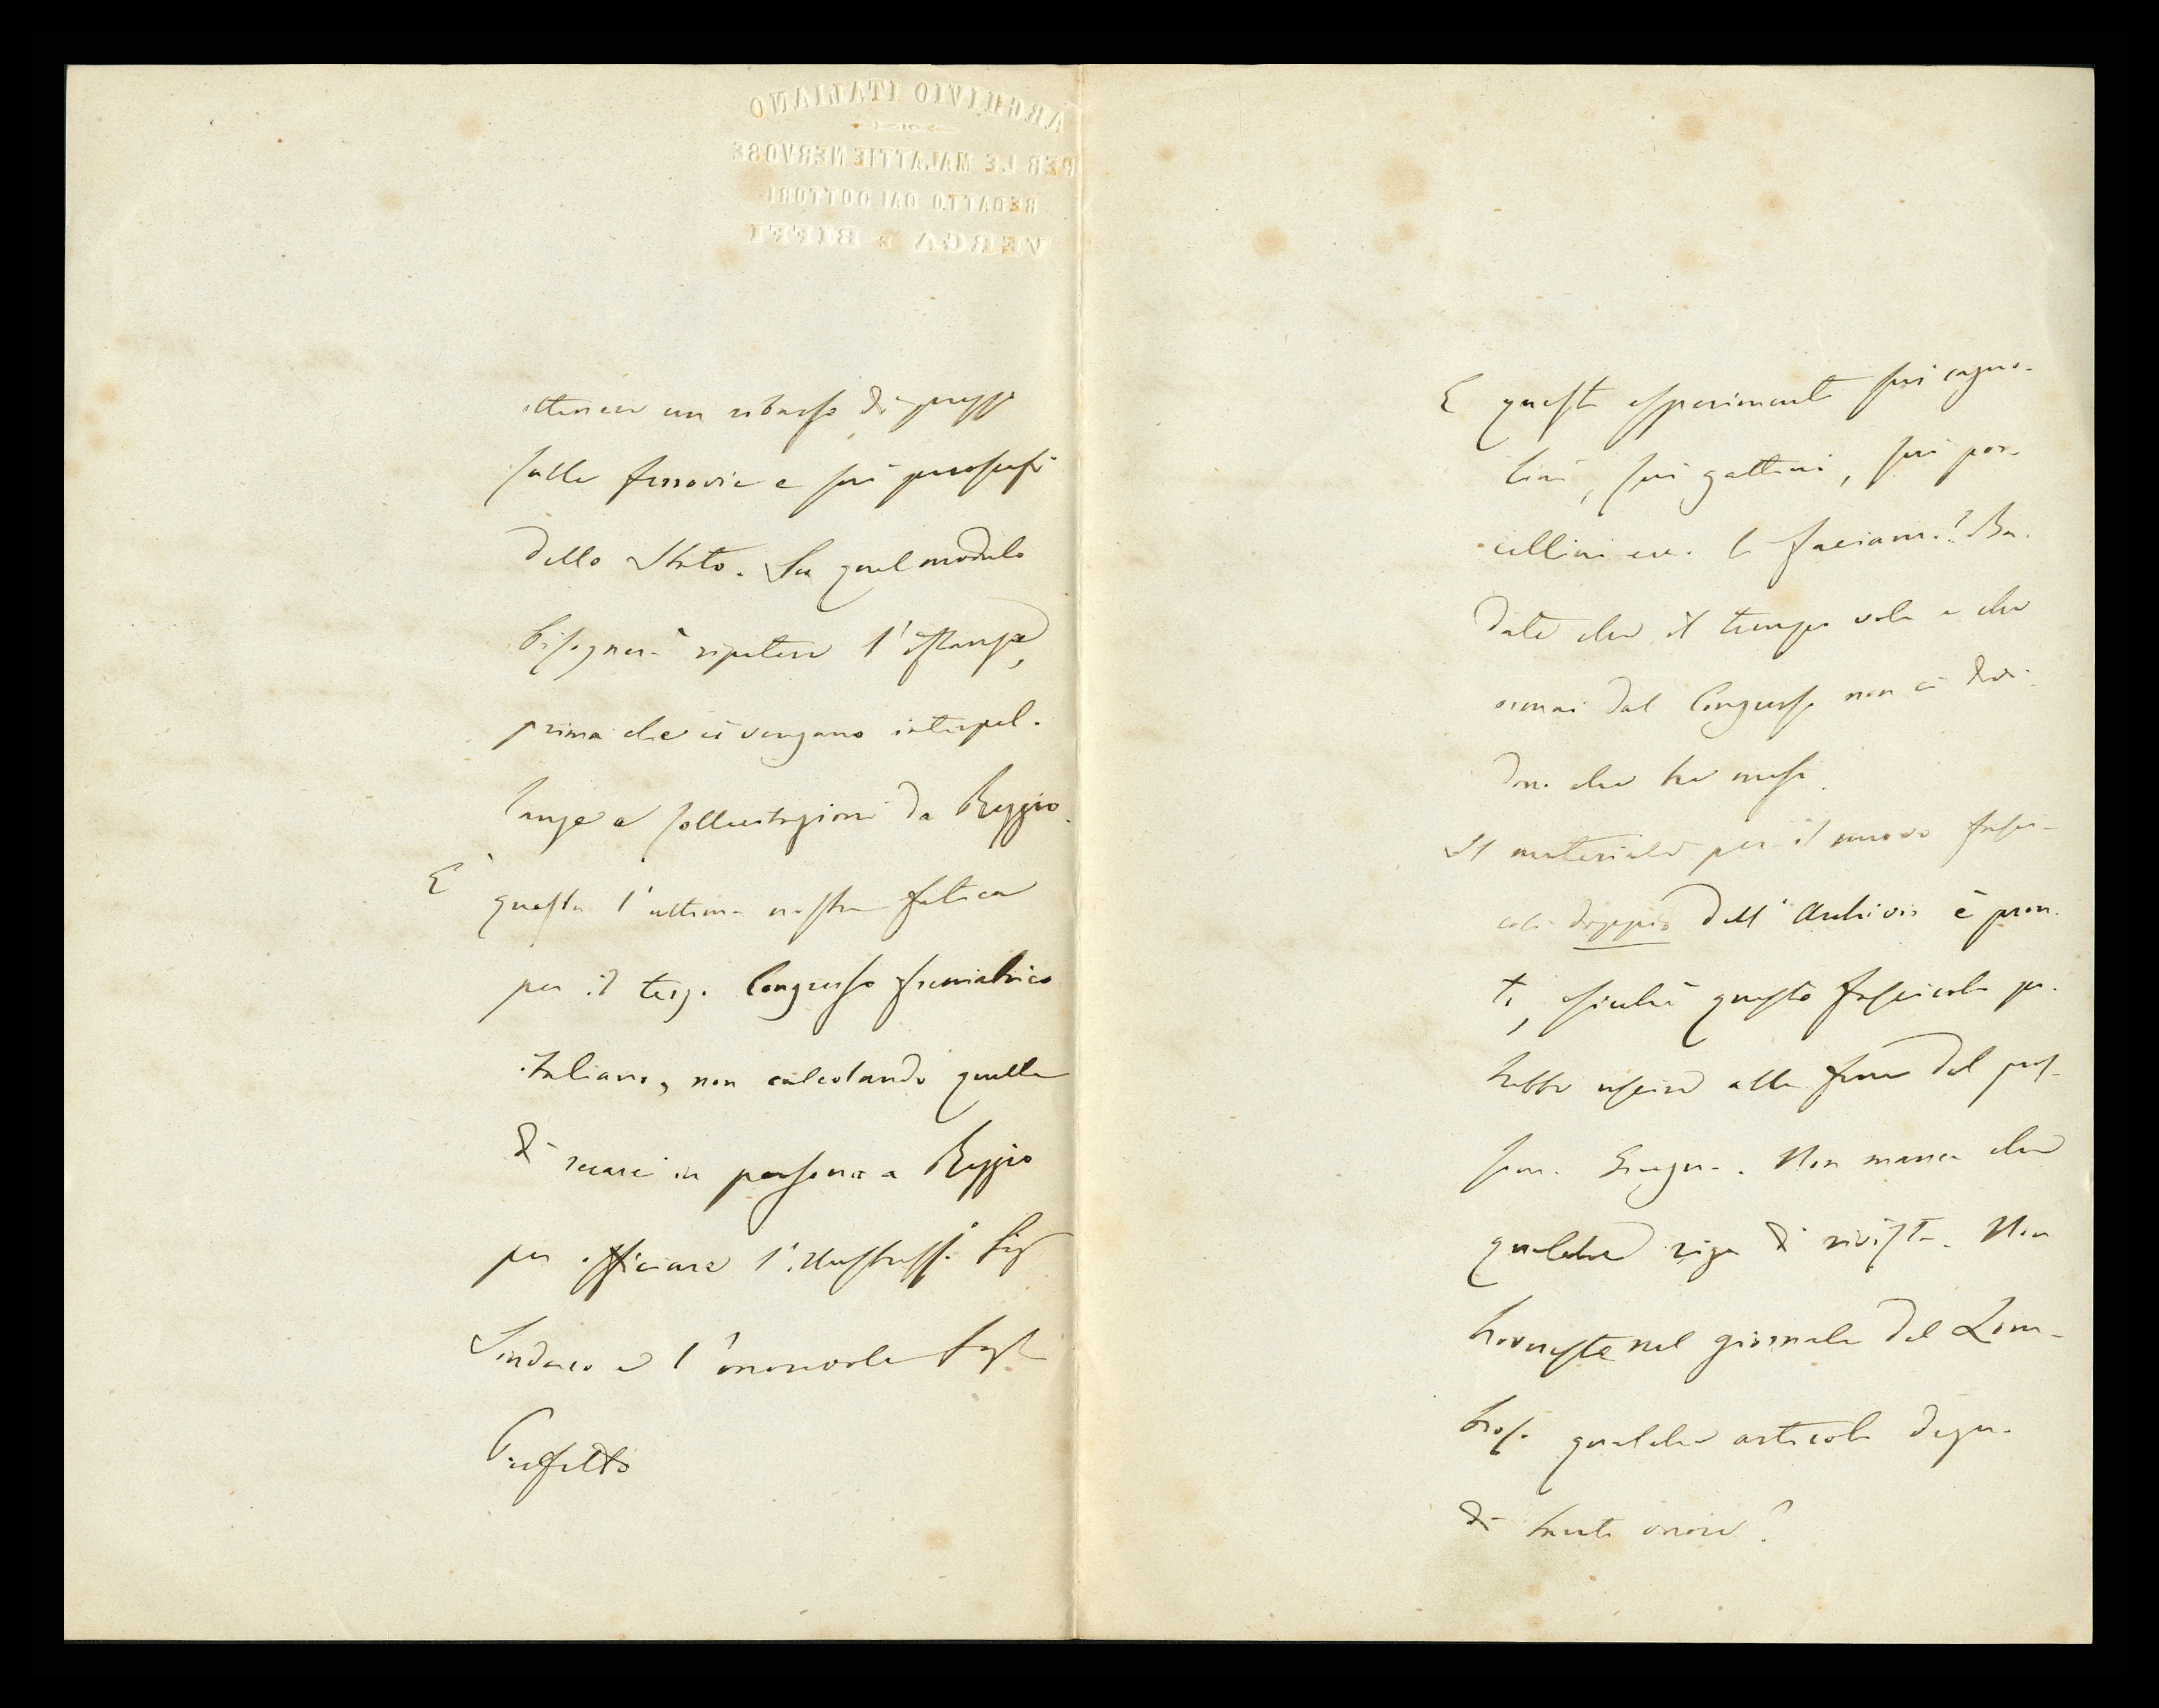 ARCHIVIO ITALIANO
PER LE MALATTIE NERVOSE
REDATTO DAI DOTTORI
VERGA E BIFFI
ottenere un ribasso di prezzo
sulle ferrovie e sui piroscafi
dello Stato. Su quel modulo
bisognerà ripetere l'istanza,
prima che ci vengano interpel-
lanze e sollecitazioni da Reggio.
È questa l'ultima nostra fatica
per il terzo Congresso freniatrico
italiano, non calcolando quella
di recarci in persona a Reggio
per officiare l'illustriss.o Sig.
Sindaco e l'onorevole Sig.
Prefetto
E questi esperimenti sui cagno-
lini, sui gattini, sui por-
cellini ecc. li facciamo? Ba-
date che il tempo vola e che
ormai dal Congresso non ci divi-
dono che tre mesi.
Il materiale per il nuovo fasci-
colo doppio dell'Archivio è pron-
to, sicché questo fascicolo po-
trebbe uscire alla fine del pros-
simo Giugno. Non manca che
qualche riga di rivista. Non
trovereste nel giornale del Lom-
broso qualche articolo degno
di tanto onore?